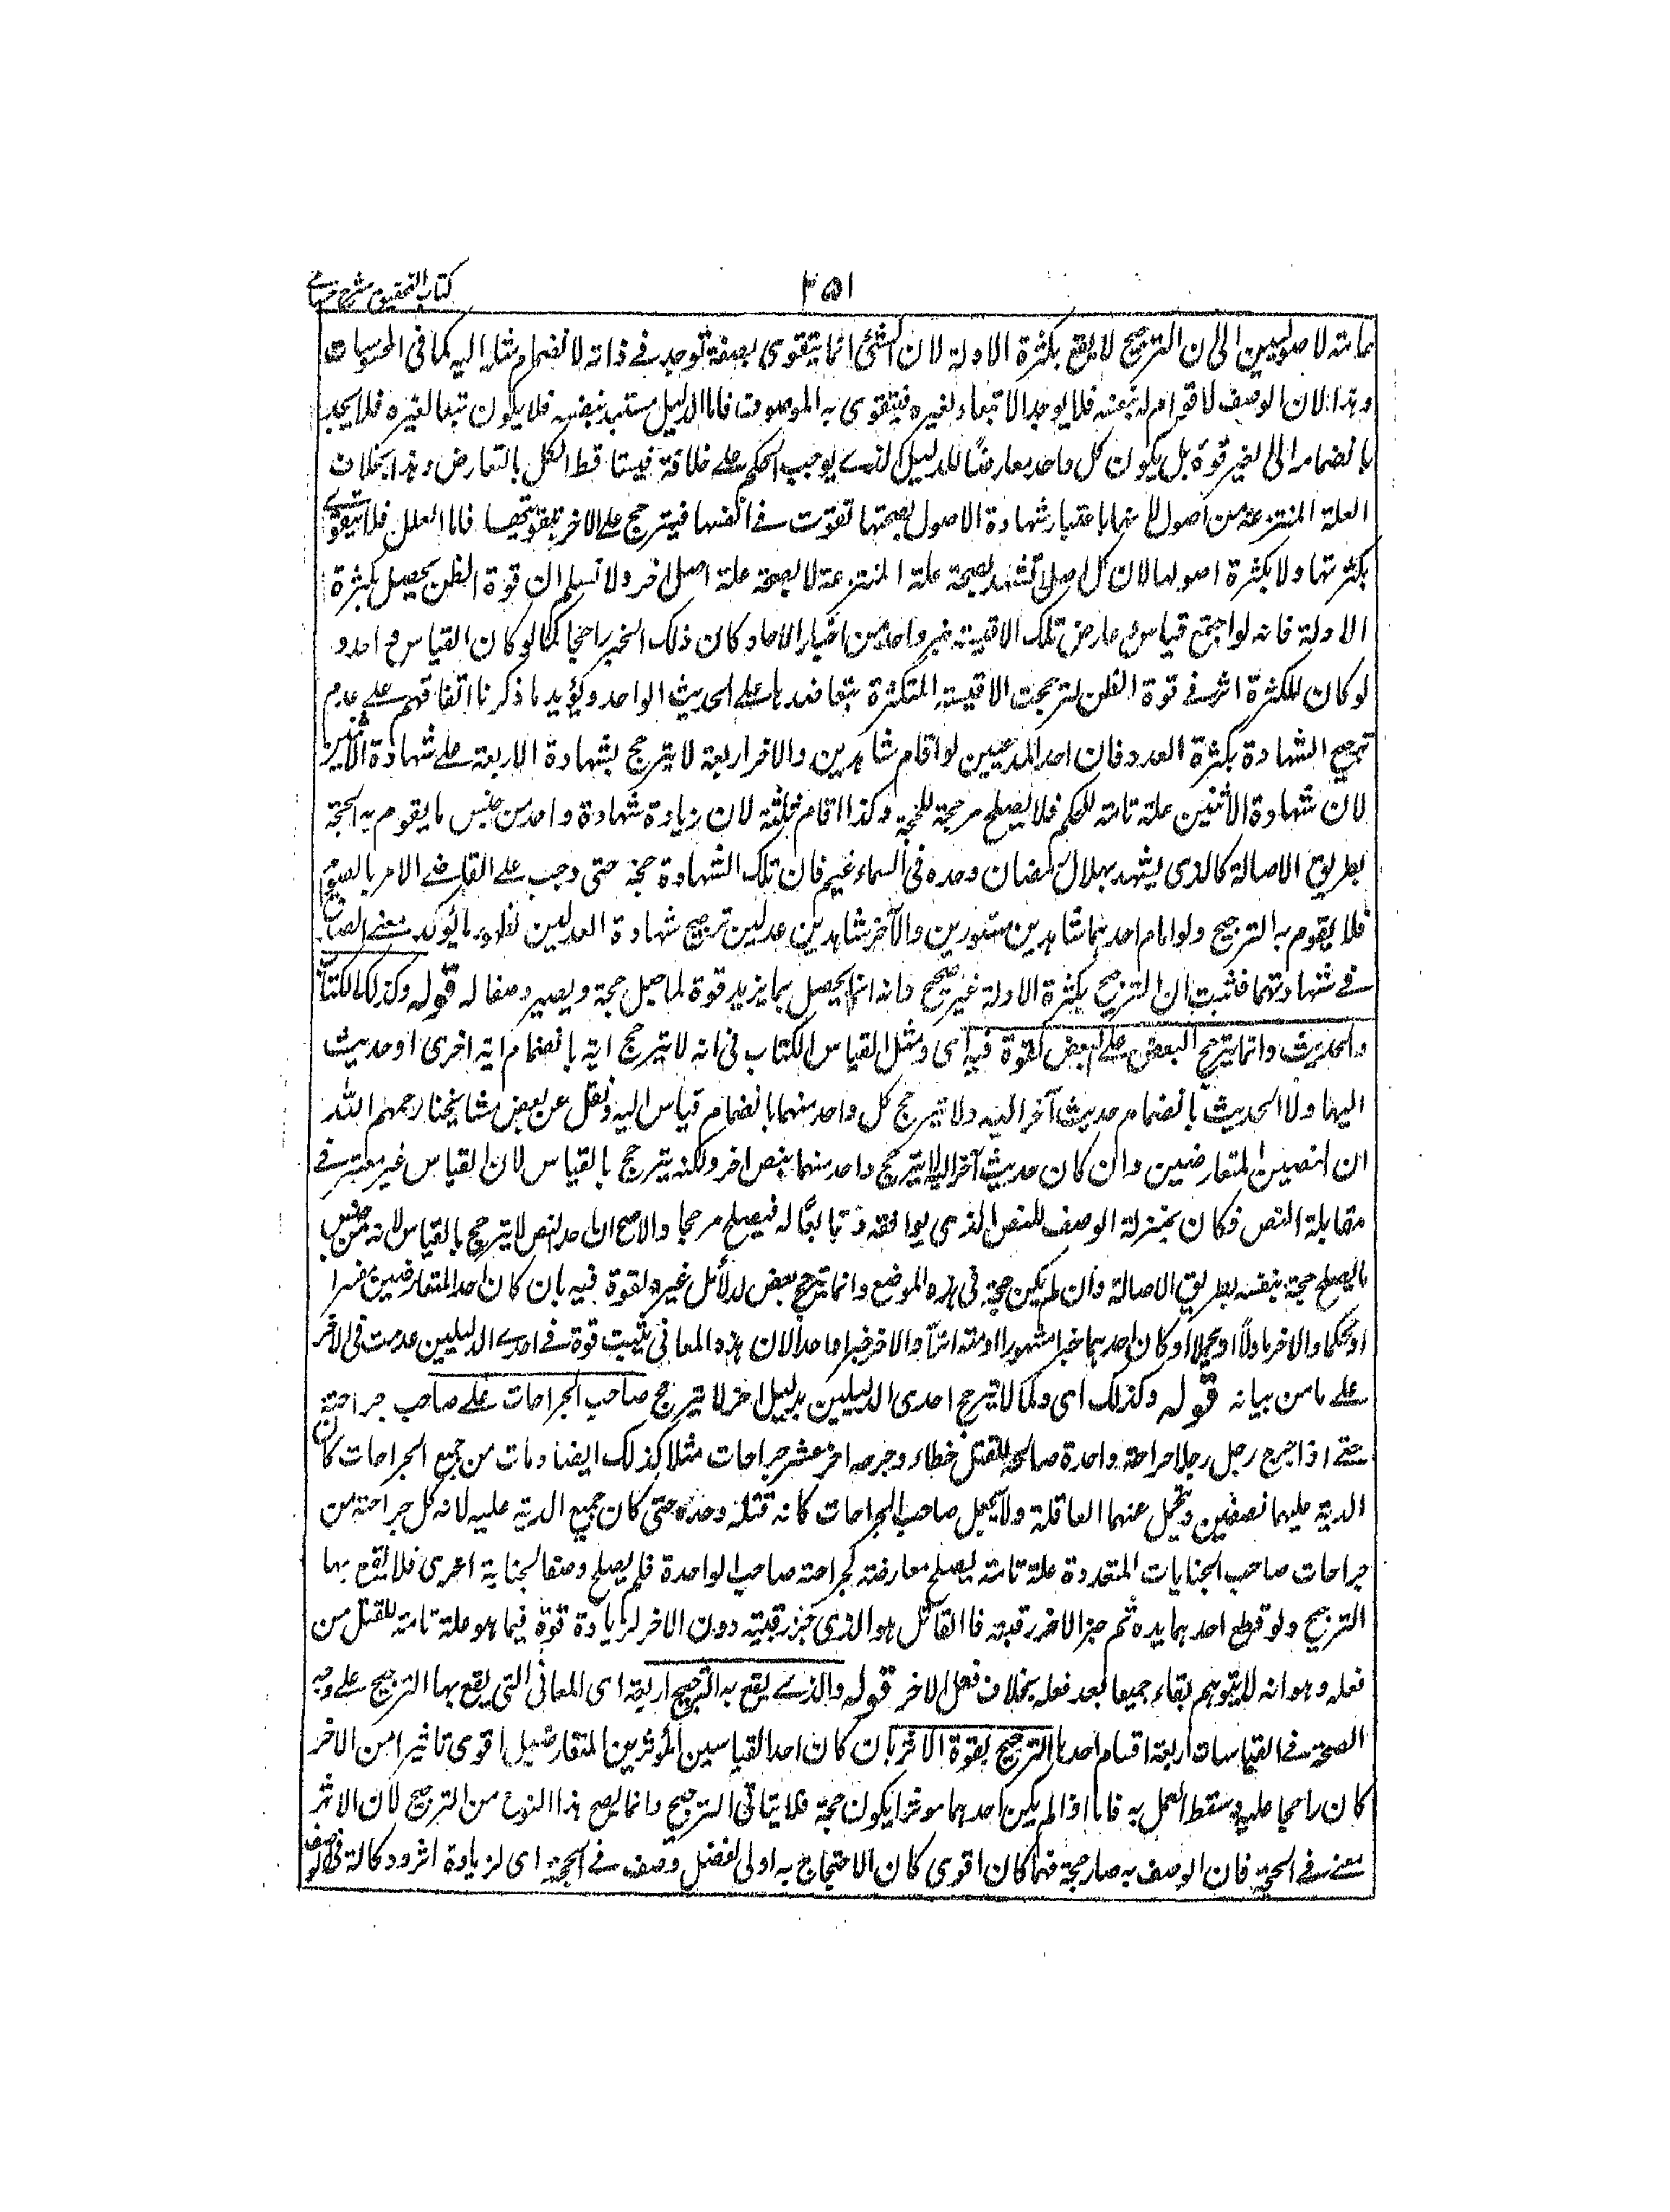 ٣٥١
كتاب التحقيق شرح حسامى
عامة لاصوليين الى ان الترجيح لا يقع بكثرة الادلة لان الشئ انما يتقوى بصفة توجد فے ذاته لا نضمام مثله اليه كما فى المحسوسات
وهذا لان الوصف لا قوام له بنفسه فلا يوجد الا تبعا لغيره فيتقوى به الموصوف فاما الدليل مستبد بنفسه فلا يكون تبعا لغيره فلا يحدث
بانضمامه الى الغير قوة بل يكون كل واحد معارضًا للدليل الذے يوجب الحكم علے خلافه فيتساقط الكل بالتعارض وهذا بخلاف
العلة المنتزعة من اصول لانها باعتبار شهادة الاصول بصحتها تقوت فے انفسها فيترجح علے الاخر فاما العلل فلا يتقوے
بكثرتها ولا بكثرة اصولها لان كل اصل تشهد بصحة علة المنتزعة لا بصحة علة اصل اخر ولا نسلم ان قوة الظن يحصل بكثرة
الادلة فانه لو اجتمع قياس وعارض تلك الاقيسة خبر واحد من اخبار الاحاد كان ذلك الخبر راجحا كما لو كان القياس واحد و
لو كان للكثرة اثر فے قوة الظن لترجحت الاقيسة المتكثرة بتعاضدها علے الحديث الواحد ويؤيد ما ذكرنا اتفاقهم علے عدم
ترجيح الشهادة بكثرة العدد فان احد المدعيين لو اقام شاهدين والاخر اربعة لا يترجح بشهادة الاربعة علے شهادة الاثنين
لان شهادة الاثنين علة تامة للحكم فلا يصلح مرجحة للحجة وكذا اقام ثلثة لان زيادة شهادة واحد من جنس ما يقوم به الحجة
بطريق الاصالة كالذى يشهد بهلال رمضان وحده فى السماء غيم فان تلك الشهادة حجة حتى وجب علے القاضے الامر بالصوم
فلا يقوم به الترجيح ولو اقام احدهما شاهدين مستورين والآخر شاهدين عدلين ترجح شهادة العدلين لظهور ما يؤكد معنے الصدق
فے شهادتهما فثبت ان الترجيح بكثرة الادلة غير صحيح وانه انما يحصل بما يزيد قوة لما جعل حجة ويصير وصفا له قوله وكذلك الكتاب
والحديث وانما يترجح البعض علے البعض لقوة فيه اى ومثل القياس الكتاب فى انه لا يترجح اية بانضمام اية اخرى او حديث
اليها ولا الحديث بانضمام حديث آخر اليه ولا يترجح كل واحد منهما بانضمام قياس اليه ونقل عن بعض مشايخنا رحمهم الله
ان النصين المتعارضين وان كان حديث آخر لا يترجح واحد منهما بنص اخر ولكنه يترجح بالقياس لان القياس غير معتبر فے
مقابلة النص فكان بمنزلة الوصف للنص الذى يوافقه وتابعًا له فيصلح مرجحا والاصح ان احد النص لا يترجح بالقياس لانه من جنس
ما يصلح حجة بنفسه بطريق الاصالة وان لم يكن حجة فى هذه الموضع وانما يترجح بعض الدلائل غيره لقوة فيه بان كان احد المتعارضين مفسرا
او محكما والاخر ماولًا او مجملا او كان احدهما خبرا مشهورا او متواترًا والاخر خبرا واحدا لان هذه المعانى يثبت قوة فے احدے الدليلين عدمت فى الاخر
علے ما من بيانه قوله وكذلك اى وكما لا يترجح احدى الدليلين بدليل اخر لا يترجح صاحب الجراحات علے صاحب جراحة
حتے اذا جرح رجل رجلا جراحة واحدة صالحة للقتل خطاء وجرحه اخر عشر جراحات مثلا كذلك ايضا ومات من جميع الجراحات كان
الدية عليهما نصفين وتحمل عنهما العاقلة ولا يجعل صاحب الجراحات كانه قتله وحده حتى كان جميع الدية عليه لانه كل جراحة من
جراحات صاحب الجنايات المتعددة علة تامة يصلح معارضة لجراحة صاحب الواحدة فلم يصلح وصفا لجناية اخرى فلا يقع بها
الترجيح ولو قطع احدهما يده ثم جز الاخر رقبته فالقاتل هو الذى جز رقبته دون الاخر لزيادة قوة فيما هو علة تامة للقتل من
فعله وهو انه لا يتوهم بقاءه جميعا بعد فعله بخلاف فعل الاخر قوله والذے يقع به الترجيح اربعة اى المعانى التى يقع بها الترجيح علے وجه
الصحة فے القياسات اربعة اقسام احدها الترجيح بقوة الاثر بان كان احد القياسين المؤثرين المتعارضين اقوى تاثيرا من الاخر
كان راجحا عليه وسقط العمل به فاما اذا لم يكن احدهما موثرا يكون حجة فلا يتاتى الترجيح وانما يصح هذا النوع من الترجيح لان الاثر
معنے فے الحجة فان الوصف به صار حجة فمهما كان اقوى كان الاحتجاج به اولى لفضل وصف فے الحجة اى لزيادة اثر وكالة فى الوصف